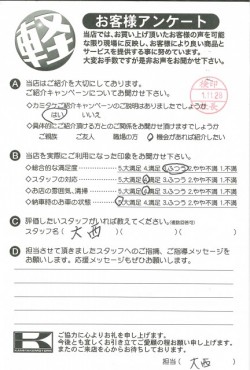 軽
お客様アンケート
当店では、お買い上げ頂いたお客様の声を可能
な限り現場に反映し、お客様により良い商品と
サービスを提供する事に努めています。
大変お手数ですが是非お声をお聞かせ下さい。
A 当店はご紹介を大切にしております。
ご紹介キャンペーンについてお聞かせ下さい。
◇カミタケご紹介キャンペーンのご説明はありましたでしょうか
はい いいえ
◇具体的にご紹介頂ける方とのご関係をお聞かせ頂けますでしょうか
ご親族 ご友人 職場の方 機会があれば紹介したい
B 当店を実際にご利用になった印象をお聞かせ下さい。
◇総合的な満足度 5.大満足 4.満足 3.ふつう 2.やや不満 1.不満
◇スタッフの対応 5.大満足 4.満足 3.ふつう 2.やや不満 1.不満
◇お店の雰囲気、清掃 5.大満足 4.満足 3.ふつう 2.やや不満 1.不満
◇納車時のお車の状態 5.大満足 4.満足 3.ふつう 2.やや不満 1.不満
C 評価したいスタッフがいれば教えてください。(複数回答可)
スタッフ名( 大西 )
D 担当させて頂きましたスタッフへのご指摘、ご指導メッセージを
お願いします。応援メッセージもぜひお願いします。
K
ご協力に心よりお礼を申し上げます。
今後とも宜しくお引き立てご愛顧の程お願い申し上げます。
またのご来店を心からお待ちしております。
担当( 大西 )